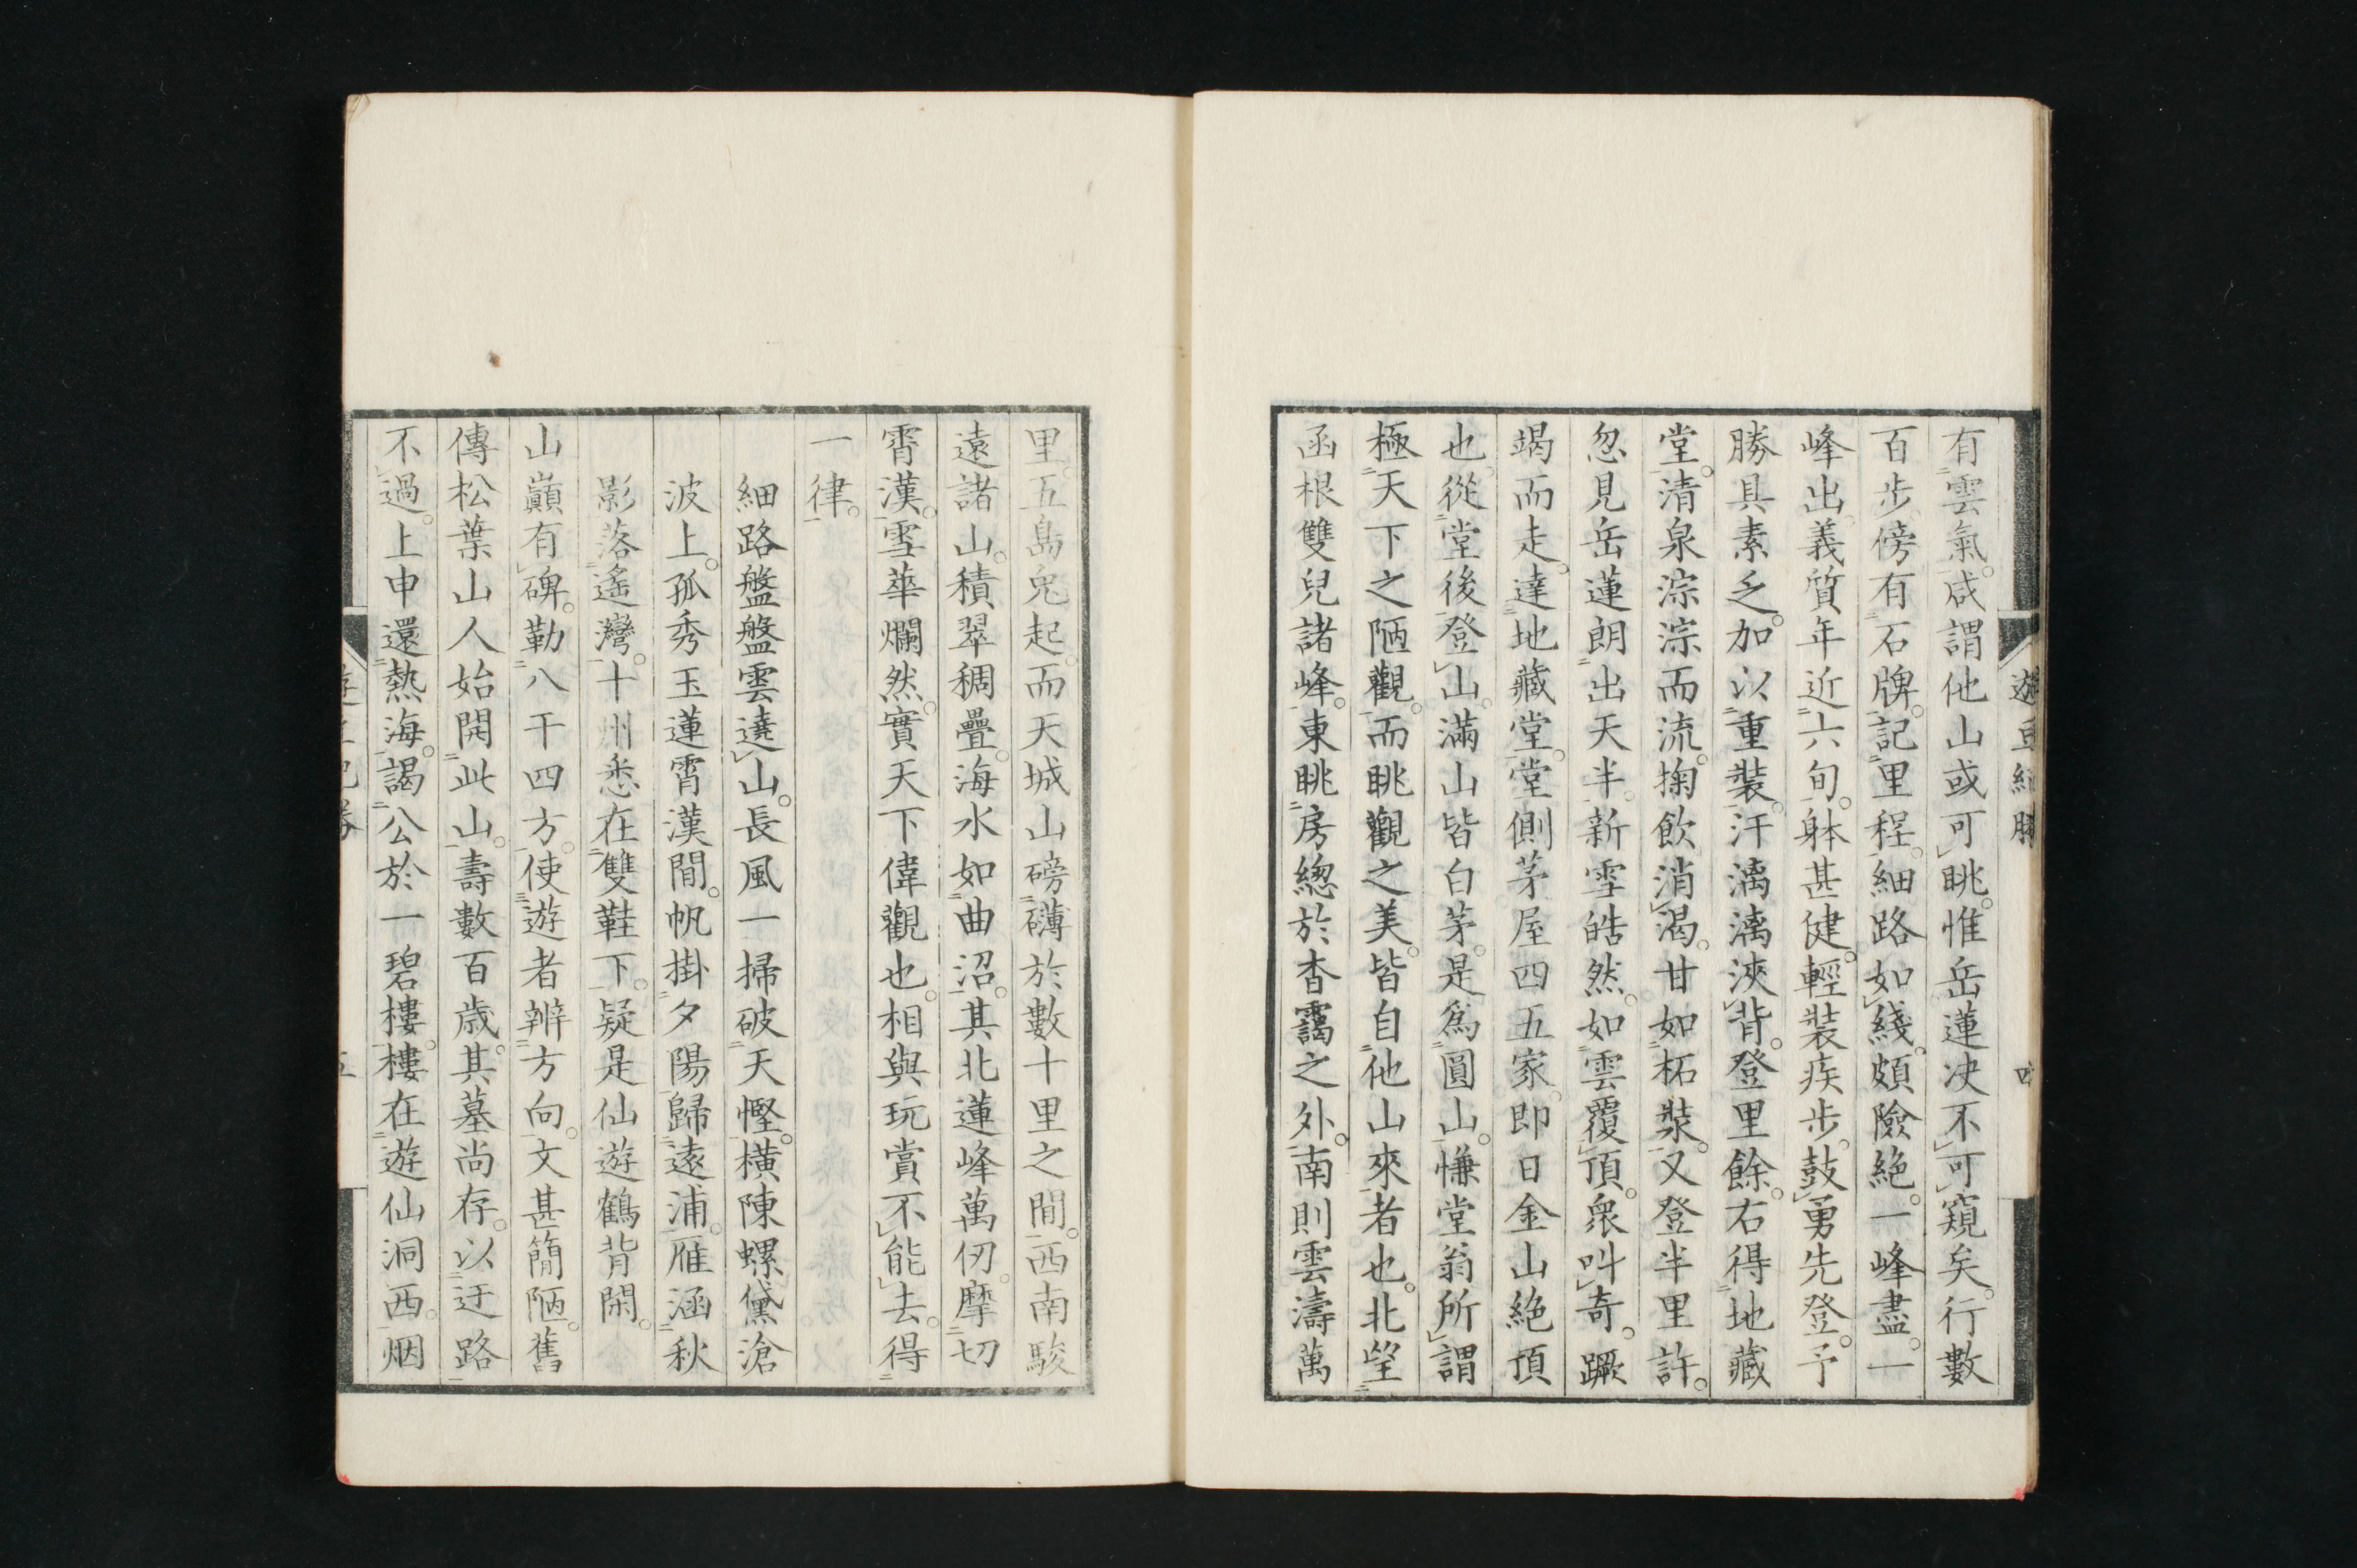 遊豆紀勝
四
有雲氣。咸謂他山或可眺。惟岳蓮决不可窺矣。行數
百步。傍有石牌。記里程。細路如綫。頗險絶。一峰盡。一
峰出。義質年近六旬。躰甚健。輕裝疾步。鼓勇先登。予
勝具素乏。加以重裝。汗漓漓浹背。登里餘。右得地藏
堂。清泉淙淙而流。掬飮消渴。甘如柘漿。又登半里許。
忽見岳蓮朗出天半。新雪皓然。如雲覆頂。衆叫奇。蹶
竭而走。達地藏堂。堂側茅屋四五家。即日金山絶頂
也。從堂後登山。滿山皆白茅。是爲圓山。慊堂翁所謂
極天下之陋觀。而眺觀之美。皆自他山來者也。北望
函根雙兒諸峰。東眺房總於杳靄之外。南則雲濤萬
里。五島兒起。而天城山磅礴於數十里之間。西南駿
遠諸山。積翠稠疊。海水如曲沼。其北蓮峰萬仞。摩切
霄漢。雪華爛然。實天下偉觀也。相與玩賞不能去。得
一律。
細路盤盤雲遶山。長風一掃破天慳。横陳螺黛滄
波上。孤秀玉蓮霄漢間。帆掛夕陽歸遠浦。雁涵秋
影落遙灣。十州悉在雙鞋下。疑是仙遊鶴背閑。
山巓有碑。勒八干四方。使遊者辨方向。文甚簡陋。舊
傳松葉山人始開此山。壽數百歳。其墓尚存。以迂路
不過。上申還熱海。謁公於一碧樓。樓在遊仙洞西。烟
五